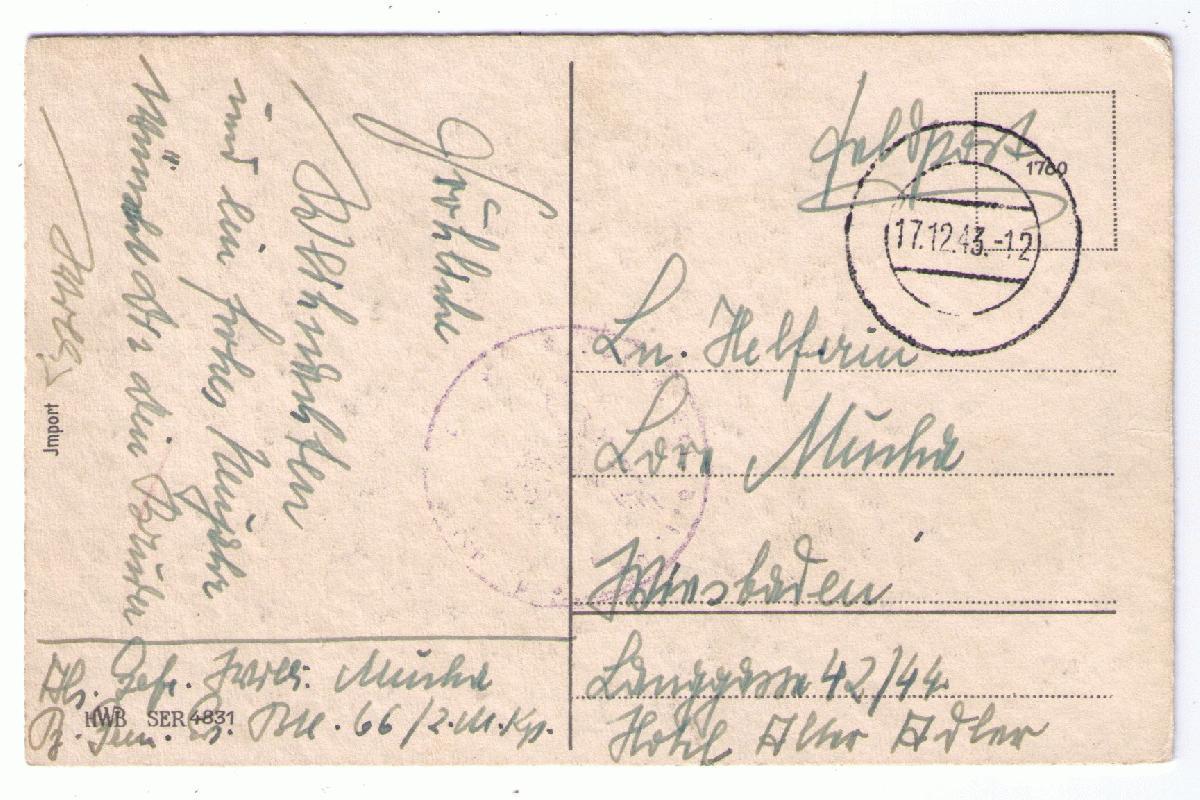 Fröhliche
Weihnachten
und ein frohes Neujahr
wünscht Dir dein Bruder
Jmport
Gefr. Mucha
HWB SER 4831
66/2.M.Kp.
Feldpost
1760
17.12.43.-12
Ln. Helferin
Lore Mucha
Wiesbaden
Langgasse 42/44.
Hotel Alter Adler